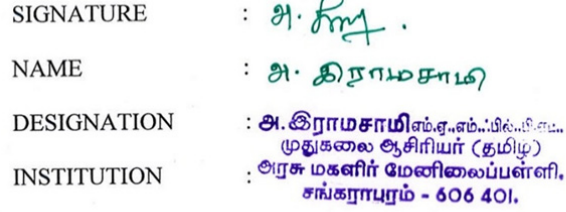 SIGNATURE :
NAME : அ. இராமசாமி
DESIGNATION : அ.இராமசாமி எம்.ஏ.,எம்.ஃபில்.,பி.எட்.,
முதுகலை ஆசிரியர் (தமிழ்)
INSTITUTION : அரசு மகளிர் மேனிலைப்பள்ளி,
சங்கராபுரம் - 606 401.